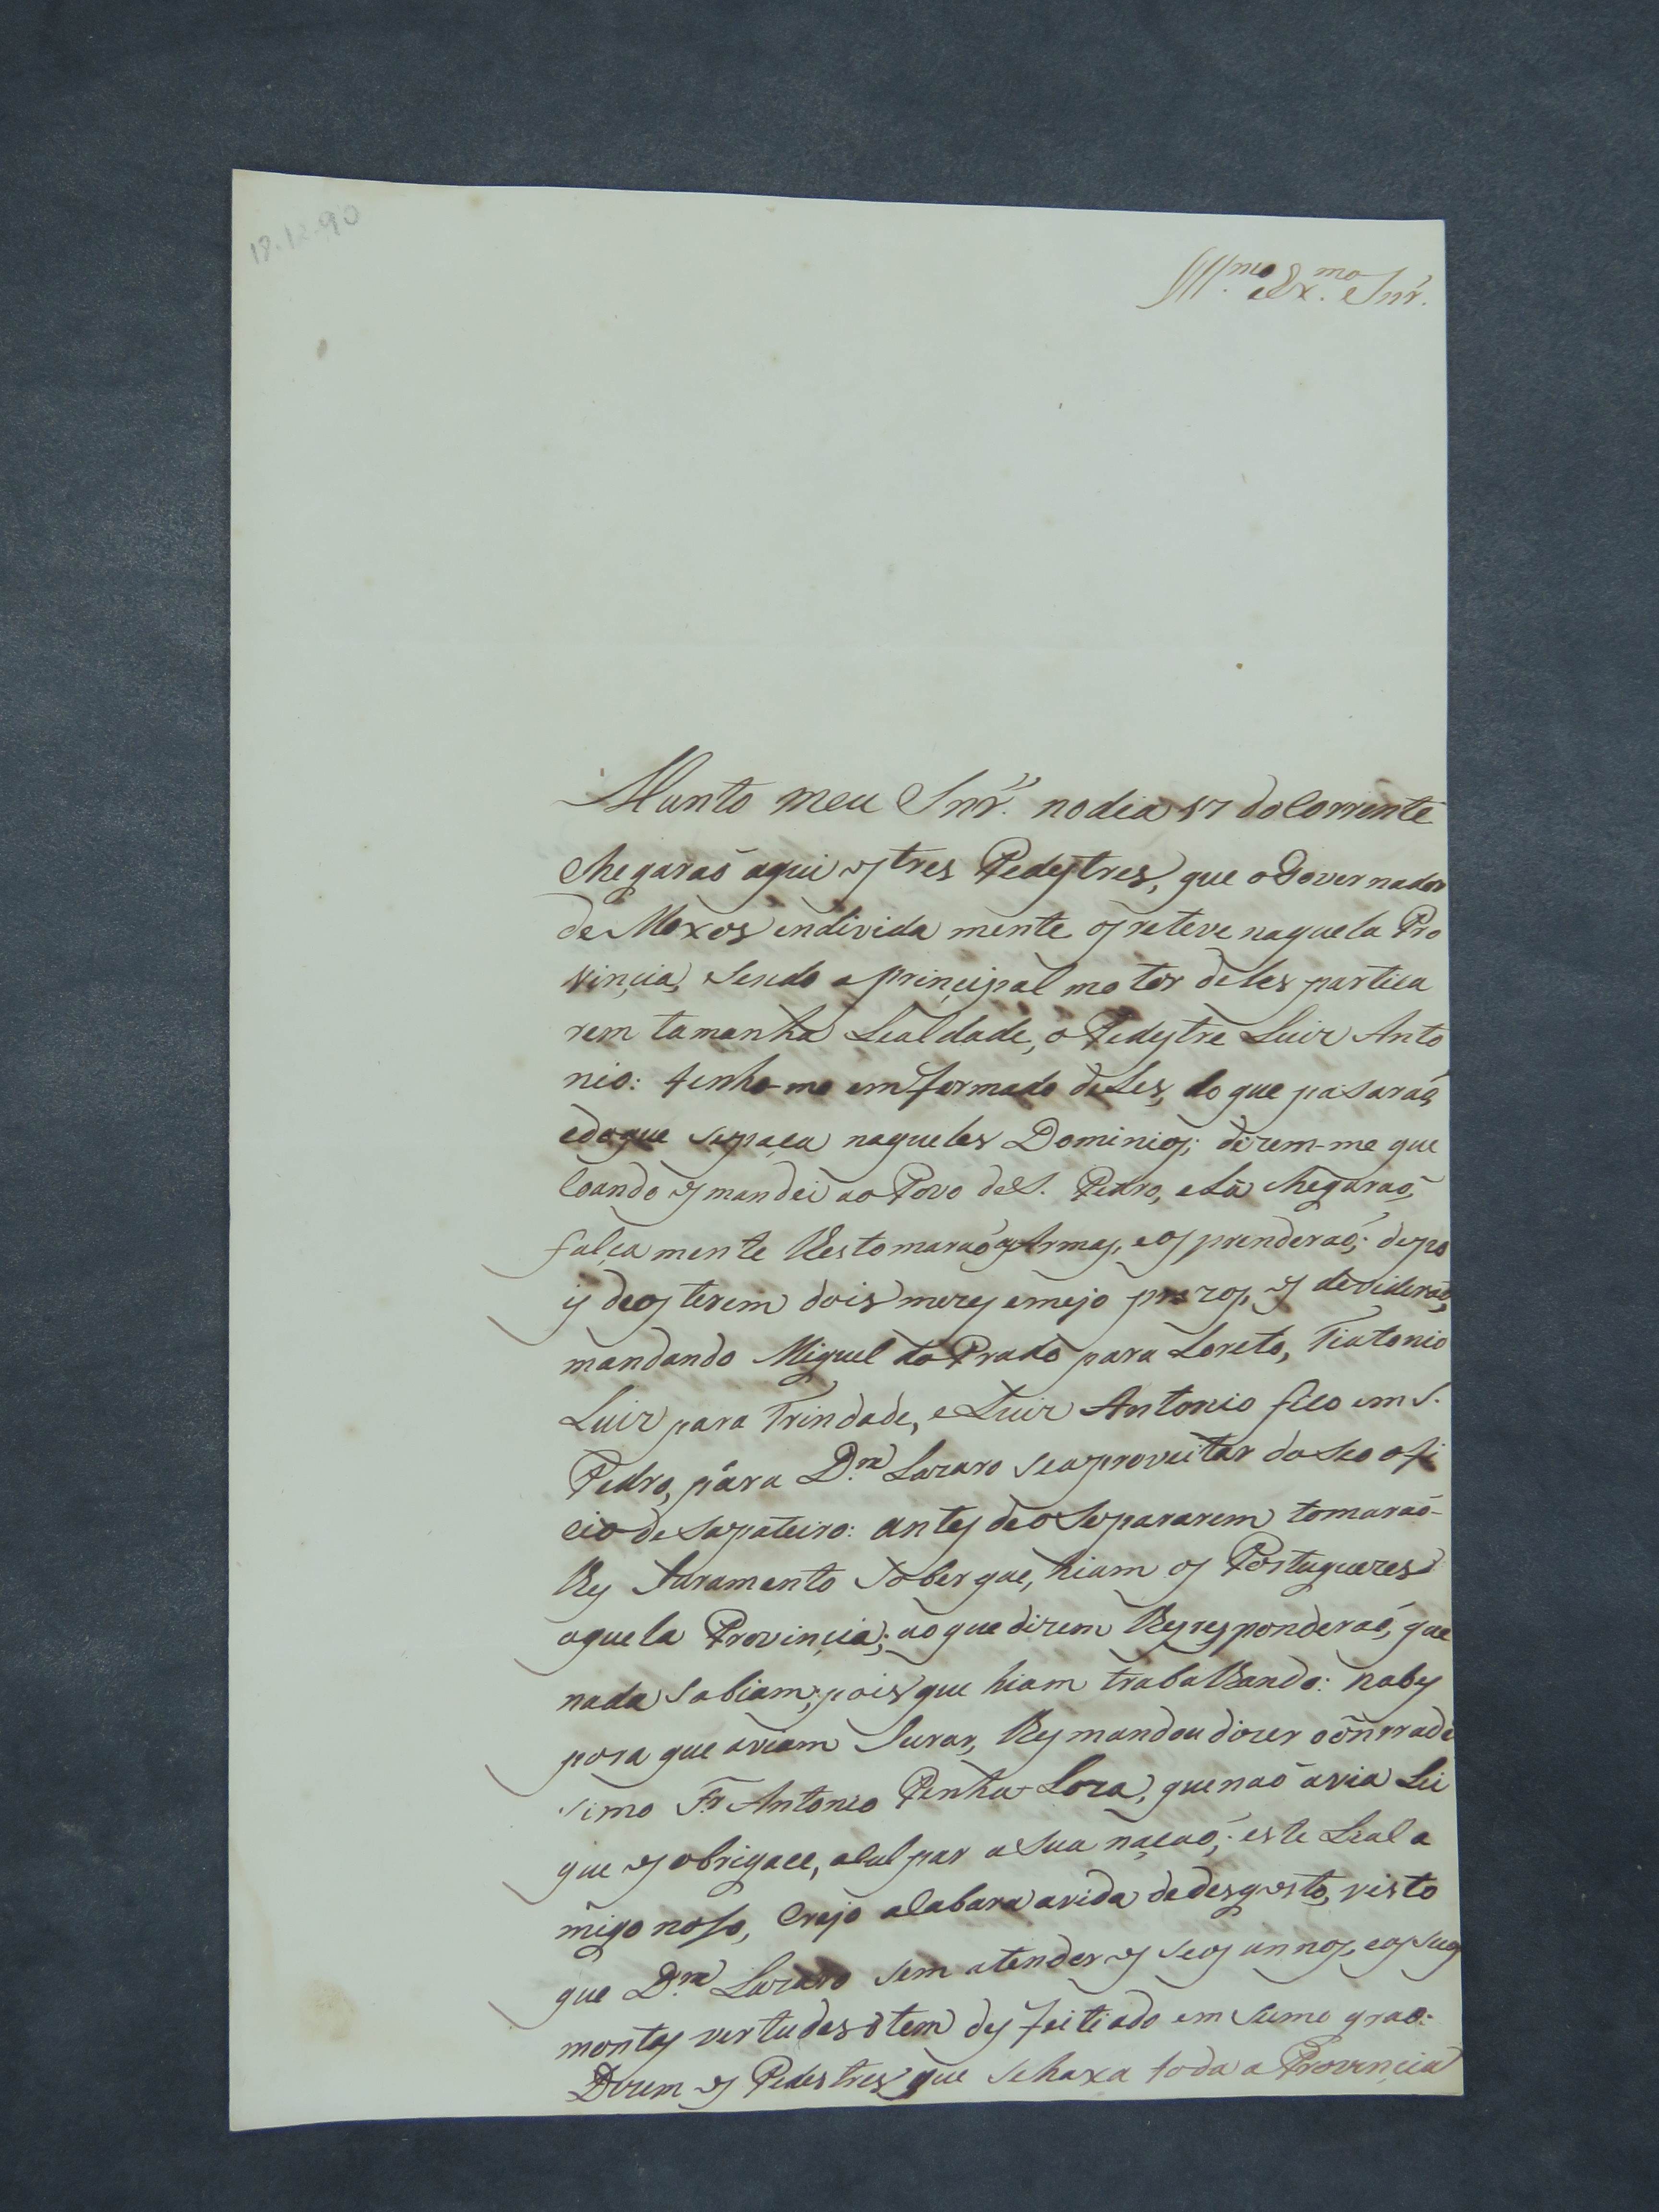 18.12.90
Ill.mo e Ex.mo Snr.
Munto meu Snr. no dia 17 do Corrente
chegaraõ aqui os tres Pedestres, que o Governador
de Moxos individa mente os reteve naquela Pro
vinçia, sendo o prinçipal motor deles partica
rem tamanha Lealdade, o Pedestre Luiz Anto
nio: tenho-me emformado deles, do que pasaraõ,
e do que se paça naqueles Dominios; dizem-me que
Coando os mandei ao Povo de S. Pedro, e Lá chegaraõ,
falça mente lles tomaraõ as Armas, e os prenderaõ; depo
is de os terem dois mezes e mejo prezos, os devideraõ,
mandando Miguel do Prado para Loreto, Tiatonio
Luiz para Trindade, e Luiz Antonio fico em S.
Pedro, para D.m Lazaro se aproveitar do seo ofi
cio de sapateiro: antes de o separarem tomaraõ-
lles Juramento sober que, hiam os Portuguezes
aquela Provinçia; ao que dizem lles responderaõ, que
nada sabiam, pois que hiam traballando: naby
pora que aviam Jurar, lles mandou dizer o õnrrade
simo Fr. Antonio Penha Loza, que naõ avia Lei
que os obrigace, a culpar a sua naçaõ; este Leal a
migo noso, Crejo acabara a vida de desgosto, visto
que D.m Lazaro sem atender os seos annos, e as suas
montas vertudes o tem desfeitiado em sumo grao:
Dizem os Pedestres que se haxa toda a Provinçia